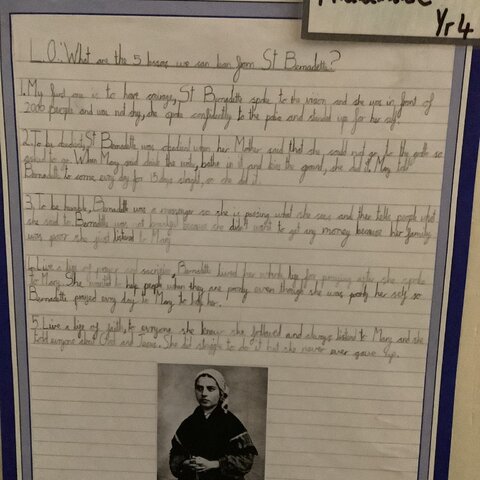 Yr 4
L.O: What are the 5 lessons we can learn from St Bernadette?
1. My first one is to have courage, St Bernadette spoke to the vision and she was in front of
2000 people and was not shy, she spoke confidently to the police and standed up for her self
2. To be obedient, St Bernadette was obedient when her Mother said that she could not go to the grotto so
asked to go. When Mary said drink the water, bathe in it and kiss the ground, she did it. Mary told
Bernadette to come every day for 15 days straight, so she did it.
3. To be humble, Bernadette was a messenger so she is passing what she sees and then tells people what
she said to. Bernadette was not boastful because she didn't want to get any money because her family
was poor she just listened to Mary.
4. Live a life of prayer and sacrifice, Bernadette lived her whole life for praying after she spoke
to Mary. She wanted to help people when they are poorly even though she was poorly her self so
Bernadette prayed every day to Mary to help her.
5. Live a life of faith, to everyone she knew she followed and always listend to Mary and she
told everyone about God and Jesus. She did struggle to do it but she never ever gave up.